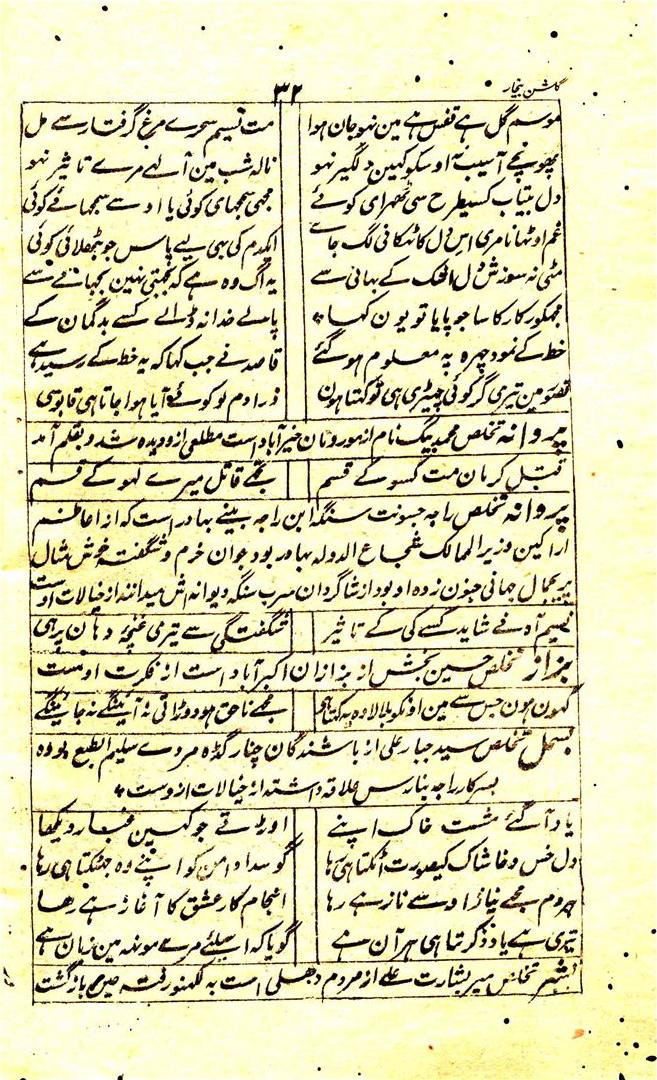 گلشن بیخار
۳۲
موسم گل ہے قفس ہے مین نہو جان ہوا مت نسیم سحرے مرغ گرفتار سے مل
پھونچے آسیب نہ اوسکو کہین دلگیر نہو نالہ شب مین آلہے مرے تاثیر نہو
دل بیتاب کسیطرح سی ٹھہرای کوئے مجہی سمجھای کوئی یا اوسے سمجھائے کوئی
غم اوٹھانا مری اس دل کا ٹھکانی لگ جاے ایکدم کی بہی لیے پاس جو بٹھلائی کوئی
مٹی نہ سوزش دل اشک کے بہانی سے یہ آگ وہ ہے کہ بجھتی نہین بجھانے سے
مجھکو رکا رکا سا جو پایا تو یون کہا پالے خدا نہ ڈالے کسے بدگمان کے
خط کے نمود چہرہ پہ معلوم ہو گئے قاصد نے جب کہا کہ یہ خط کے رسید ہے
تصور مین تیری گر کوئی چھیڑی ہی تو کہتا ہون ذرا دم لو کوئے آیا ہوا جاتا ہی قابو سی
پروانہ تخلص محمد بیگ نام از موزونان خیرآباد است مطلعی ازو دیدہ شد و بقلم آمد
قتل کر مان مت کسو کے قسم تجھے قاتل میرے لہو کے قسم
پروانہ تخلص راجہ جسونت سنگہ ابن راجہ بینے بہادر است کہ از اعاظم
اراکین وزیر الممالک شجاع الدولہ بہادر بود جوان خرم و شگفتہ خوش مثال
پریجمال جہانی جنون زدہ او بود از شاگردان سرب سنگہ دیوانہ اش میدانند از خیالات اوست
نسیم آہ نے شاید کسے کی کے تاثیر شگفتگی سے تیری غنچہ دہان پر ہی
بزاز تخلص حسین بخش از بزازان اکبرآباد است از فکرت اوست
کہون ہون جس سے مین اونکو بلا لا وہ یہ کہتا ہی مجھے ناحق نہ دوڑاتی نہ آئینگے نہ جائینگے
بسمل تخلص سید جبار علی از باشندگان چنار گڈہ مردے سلیم الطبع بودہ
بسرکار راجہ بنارس علاقہ داشتہ از خیالات اوست
یاد آ گئے مشت خاک اپنے اوڑتے جو کہین غبار دیکھا
دل خس و خاشاک کیصورت اٹکتا ہی رہا گو سدا دامن کو اپنے وہ جھٹکتا ہی رہا
ہردم مجھے نیاز اوسے ناز ہے رہا انجام کار عشق کا آغاز ہے رہا
تیری ہے یاد ذکر تیرا ہی ہر آن ہے گویا کہ اسیلئے مرے مونہہ مین زبان ہے
بشیر تخلص میر بشارت علے از مردم دھلی است بہ لکہنو رفتہ بازگشت